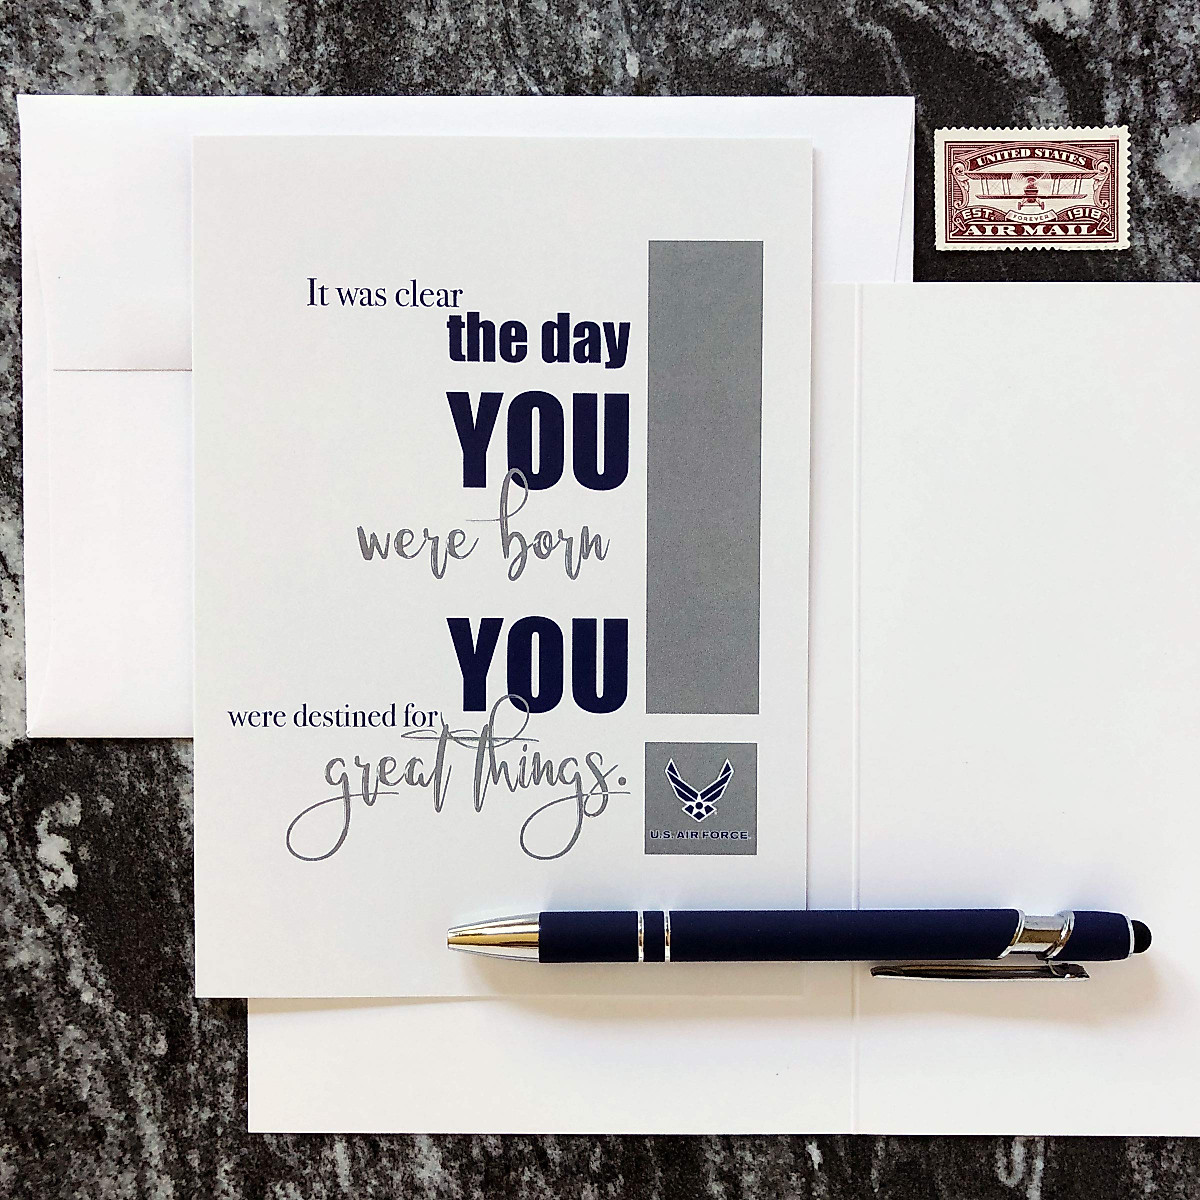 It was clear
the day
YOU
were born
YOU
were destined for
great things.
U.S. AIR FORCE
UNITED STATES
EST. FOREVER 1918
AIR MAIL